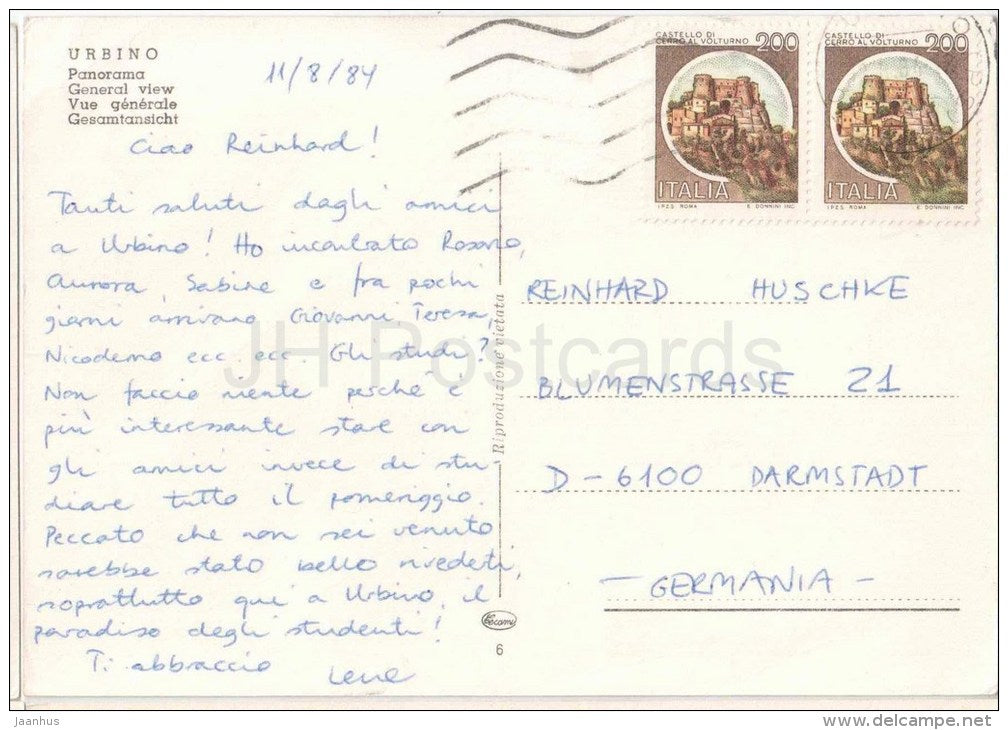 URBINO
Panorama
General view
Vue générale
Gesamtansicht
11/8/84
Ciao Reinhard!
Tanti saluti dagli amici
a Urbino! Ho incontrato Rosario,
Aurora, Sabine e fra pochi
giorni arrivano Giovanni, Teresa,
Nicodemo ecc. ecc. Gli studi?
Non faccio niente perché è
più interessante stare con
gli amici invece di stu-
diare tutto il pomeriggio.
Peccato che non sei venuto
sarebbe stato bello rivederti,
soprattutto qui a Urbino, il
paradiso degli studenti!
Ti abbraccio
Lene
Riproduzione vietata
6
CASTELLO DI
CERRO AL VOLTURNO 200
ITALIA
I.P.Z.S. ROMA E. DONNINI INC.
CASTELLO DI
CERRO AL VOLTURNO 200
ITALIA
I.P.Z.S. ROMA E. DONNINI INC.
REINHARD HUSCHKE
BLUMENSTRASSE 21
D-6100 DARMSTADT
- GERMANIA -
JH Postcards
Jaanhus
www.delcampe.net